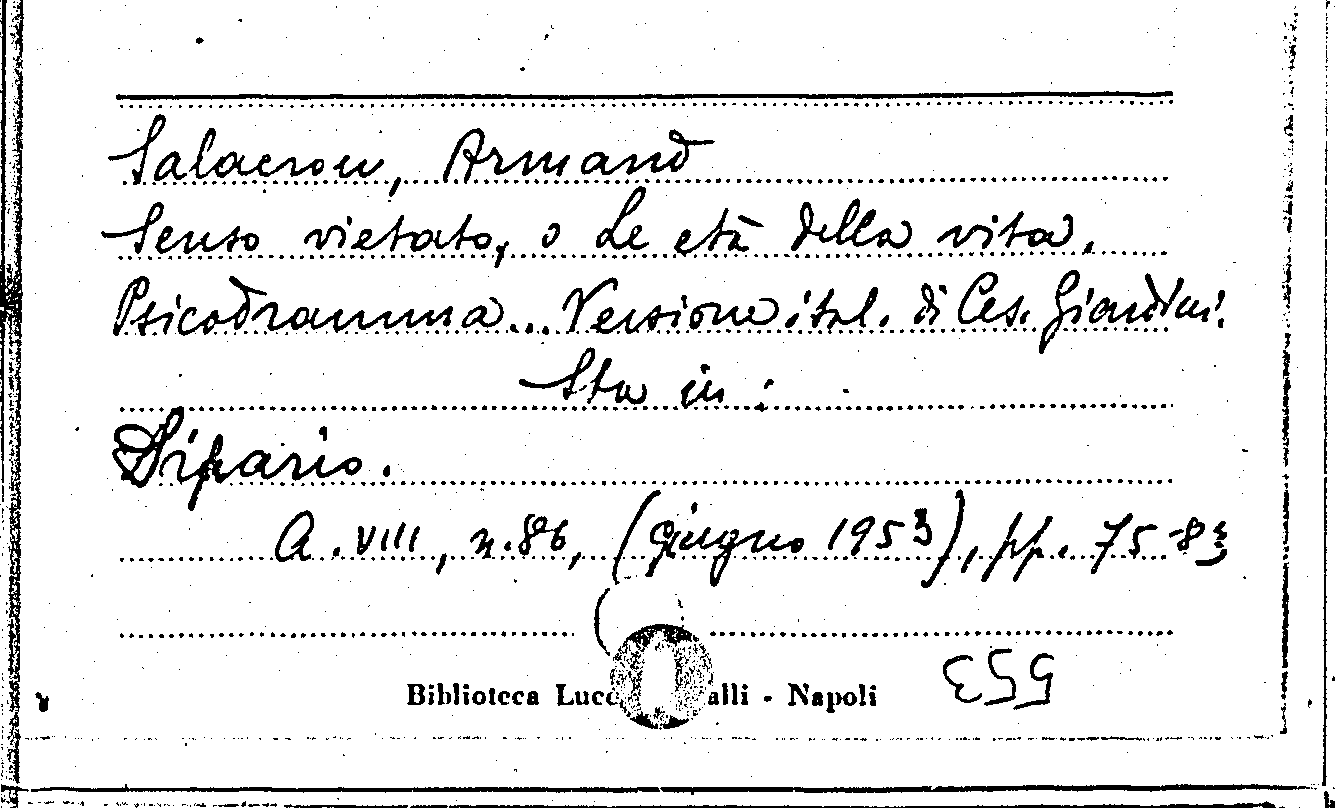 Salacrou, Armand
Senso vietato, o Le età della vita.
Psicodramma... Versione ital. di Ces. Giardini.
Sta in:
Sipario.
A. VIII, n. 86, (giugno 1953), pp. 75-83
Biblioteca Lucc alli - Napoli
553